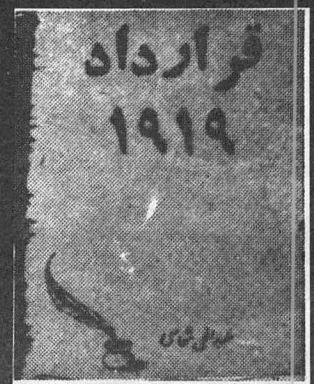 قرارداد
۱۹۱۹